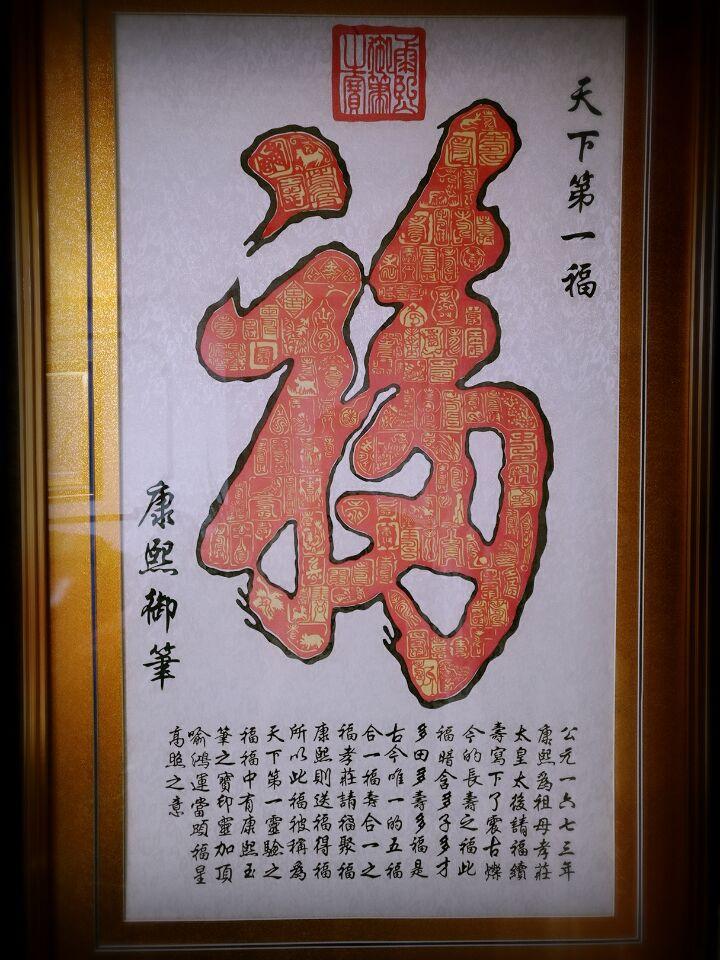 康熙御筆之寶
天下第一福
福
康熙御筆
公元一六七三年
康熙為祖母孝莊
太皇太後請福續
壽寫下了震古爍
今的長壽之福此
福暗含多子多才
多田多壽多福是
古今唯一的五福
合一福壽合一之
福孝莊請福聚福
康熙則送福得福
所以此福被稱為
天下第一靈驗之
福福中有康熙玉
筆之寶印靈加頂
喻鴻運當頭福星
高照之意